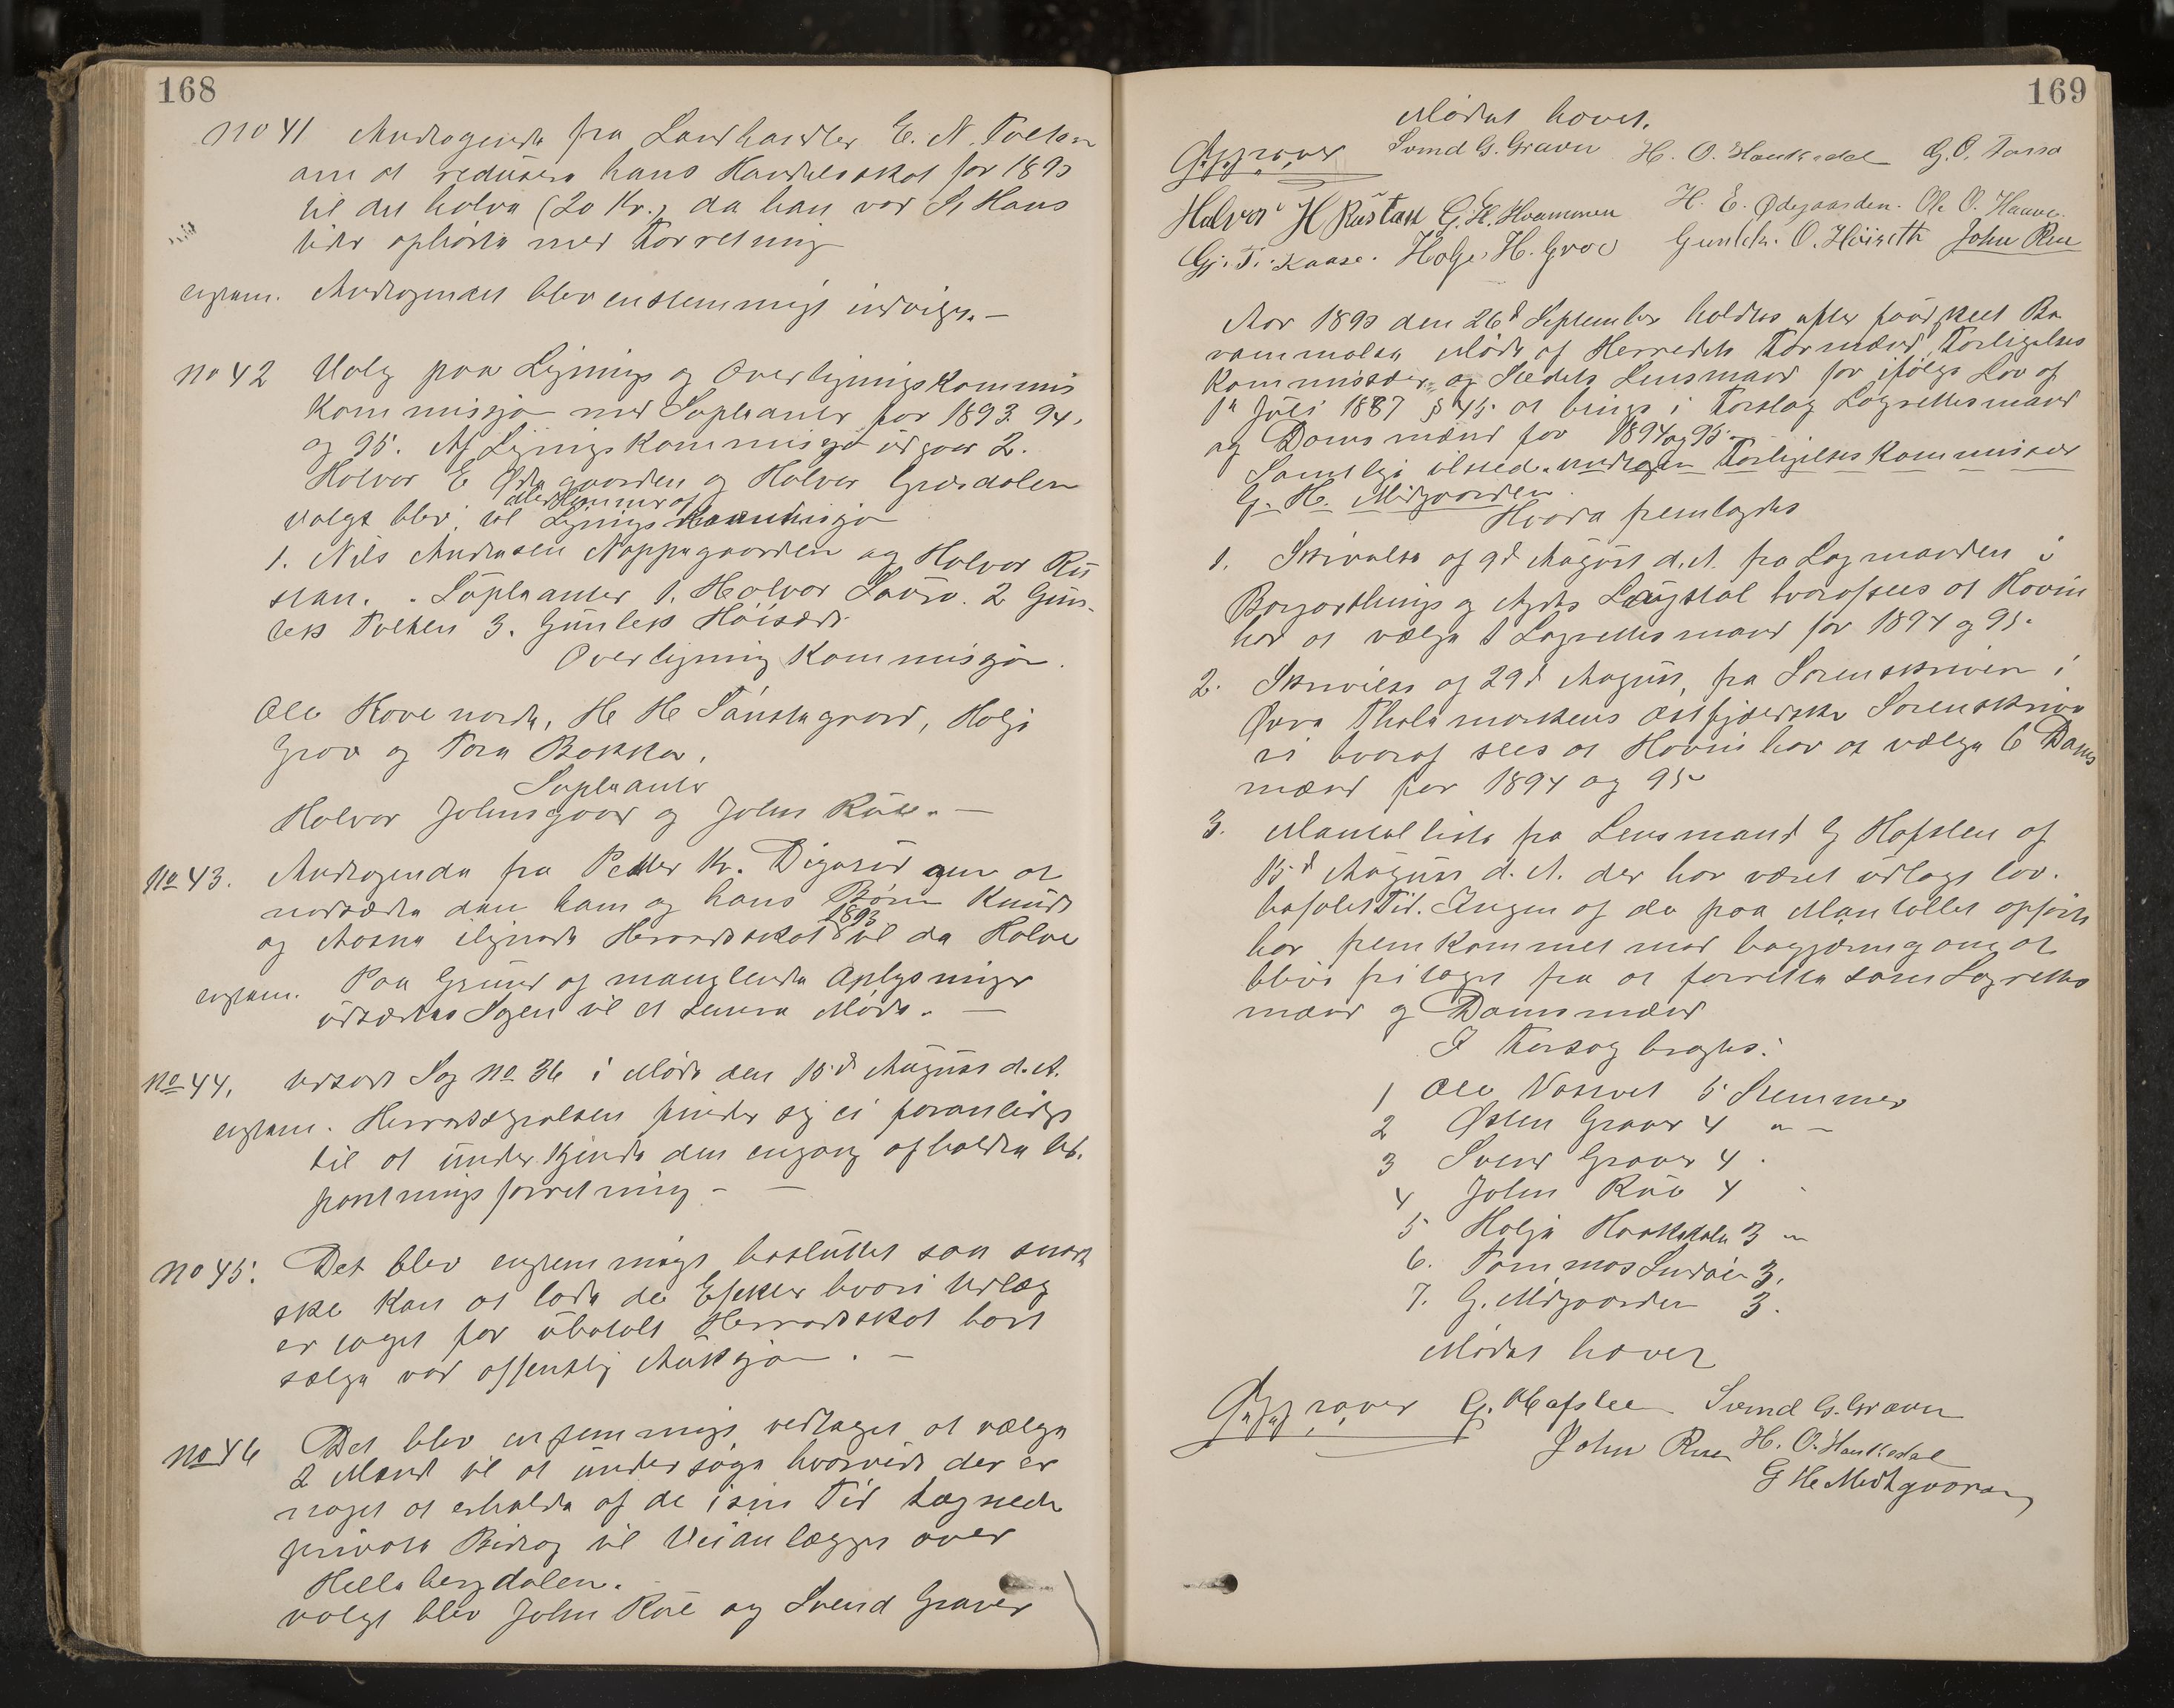 168
No 41 Andragende fra Landhandler E. N. Tveten
om at redusere hans Handelsskat for 1893
til det halve (20 Kr.) da han ved St Hans
tider ophørte med Forretning
enstem. Andragendet blev enstemmigt indvilget. —
No 42 Valg paa Lignings og Overligningskommis
Kommissjon med Supleanter for 1893. 94.
og 95. Af Ligningskommissjon udgaar 2.
Halvor E Ødegaarden og Halvor Græsdalen
Medlemmer af
valgt blev til Lignings Kommissjon
1. Nils Andresen Noppegaarden og Halvor Ru
stan. Supleanter 1. Halvor Sauro. 2 Gun-
leik Tveten 3. Gunleik Høisæt.
Overligning Kommissjon.
Ole Hove nordre, H. H Landsgaard, Holje
Grov og Tore Bakken.
Supleanter
Halvor Johnsgaard og John Rue. —
No 43. Andragende fra Petter Kr. Digerud om at
nedsætte den ham og hans Børn Knud
1893
og Aasne ilignede Herredsskat til de Halve
enstem. Paa Grund af manglende Oplysninger
udsættes Sagen til et senere Møde. —
No 44. Udsat Sag No 36 i Møde den 15de August d. A.
enstem. Herredsstyrelsen finder sig ei foranlediget
til at underkjende den engang afholdte Ud-
pantningsforretning — —
No 45. Det blev enstemmigt besluttet saa snart
ske kan at lade de Effekter hvori Udlæg
er taget for ubetalt Herredsskat bort
sælge ved offentlig Auksjon. —
No 46 Det blev enstemmigt vedtaget at vælge
2 Mænd til at undersøge hvorvidt der er
noget at erholde af de i sin Tid tegnede
private Bidrag til Veianlægget over
Hellebergdalen.
valgt blev John Rue og Svend Graver
169
Mødet hævet.
Svend G. Graver H. O. Haukedal G. O.
Halvor H Rustan G. H. Hvammen H. E. Ødegaarden. Ole O. Haave.
Gj. T. Kaase. Holje H. Grov Gunleik. O. Høiseth John Rue
Aar 1893 den 26de September holdtes efter foregaaet Be
rammelse Møde af Herredets Formænd, Forligelses
Kommissær og Stedets Lensmand for ifølge Lov af
1ste Juli 1887 § 45 at bringe i Forslag Lagrettesmænd
og Domsmænd for 1894 og 95.
Samtlige tilstede undtagen Forligelseskommissær
G. H. Midgaarden.
Hvorda fremlagdes
1. Skrivelse af 9de August d. A. fra Lagmanden i
Borgarthings og Agdes Lagstol hvorafsees at Hovin
har at vælge 1 Lagrettesmand for 1894 og 95.
2. Skrivelse af 29de August, fra Sorenskriveren i
Øvre Thelemarkens østfjeldske Sorenskrive
ri hvoraf sees at Hovin har at vælge 6 Doms
mænd for 1894 og 95
3. Mantalliste fra Lensmand G Hafsten af
15de August d. A. der har været udlagt lov-
befalet Tid. Ingen af de paa Mantallet opførte
har fremkommet med begjæring om at
blive fritaget fra at forrette som Lagrettes
mænd og Domsmænd
I Forslag bragtes:
1 Ole 5 Stemmer
2 Østen Graver 4 " —
3 Svend Graver 4 .
4 John Rue 4
5 Holje Haukedalen 3 "
6. Tommas 3.
7. G. Midgaarden 3.
Mødet hævet
G. Hafsten Svend G. Graver
John Rue H. O. Haukedal
G H Mitgaarden